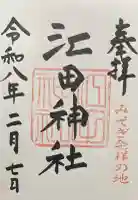 奉拝
みそぎ祭祓の地
江田神社
令和八年二月七日